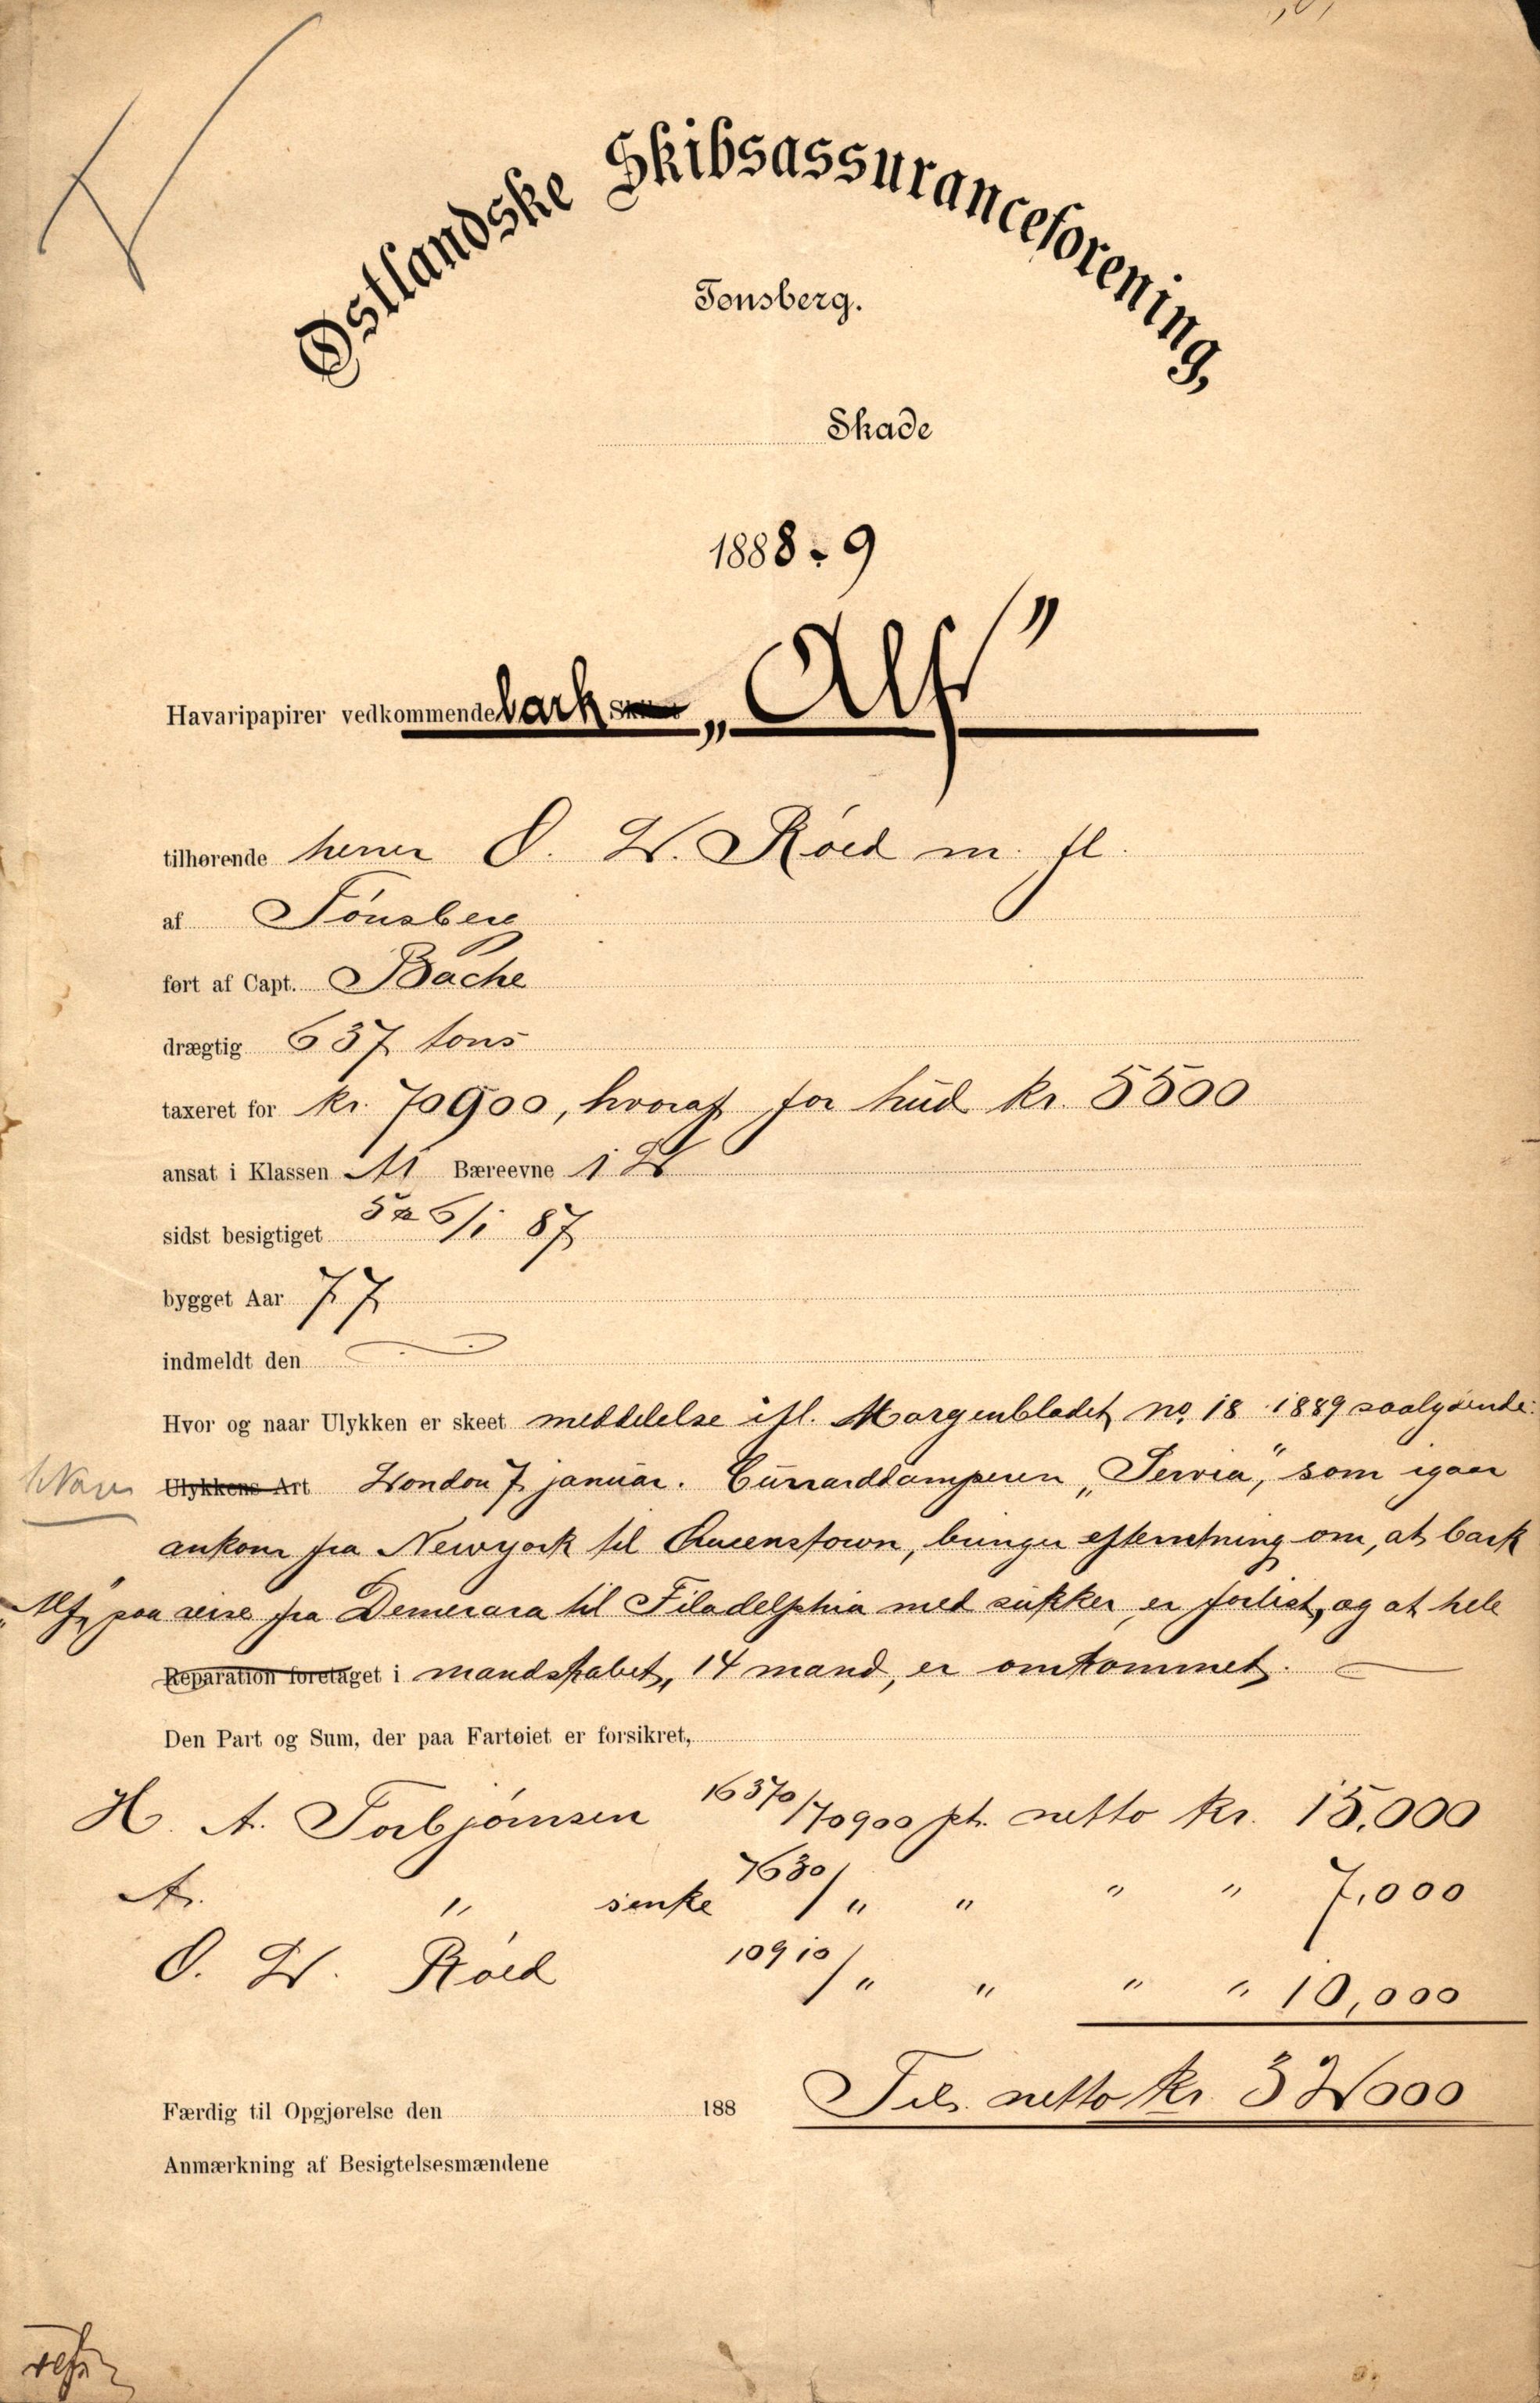 Østlandske Skibsassuranceforening,
Tønsberg.
Skade
1888-9
Havaripapirer vedkommende bark „Alf”
tilhørende herrer O. L. Röed m. fl.
af Tönsberg
ført af Capt. Bache
drægtig 637 tons
taxeret for kr. 70900, hvoraf for hud kr. 5500
ansat i Klassen A1 Bæreevne 1 L
sidst besigtiget 6/1 87
bygget Aar 77
indmeldt den
Hvor og naar Ulykken er skeet meddelelse ifl. Morgenbladet no. 18 1889 saalydende:
Ulykkens Art London 7 januar. Cunarddamperen „Servia”, som igaar
ankom fra Newyork til Queenstown, bringer efterretning om, at bark
„Alf” paa reise fra Demerara til Filadelphia med sukker, er forlist, og at hele
Reparation foretaget i mandskabet, 14 mand, er omkommet.
Den Part og Sum, der paa Fartøiet er forsikret,
H. A. Torbjörnsen 16370/70900 pt. netto kr. 15,000
A. " enke 7630/" " " " 7,000
O. L. Röed 10910/" " " " 10,000
Tils. netto kr. 32000
Færdig til Opgjørelse den 188
Anmærkning af Besigtelsesmændene